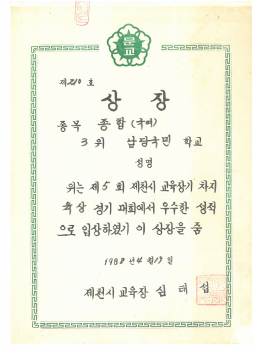 문교
제210호
상장
종목 종합 (국여)
3위 남당국민 학교
성명
위는 제5회 제천시 교육장기 차지
육상 경기 대회에서 우수한 성적
으로 입상하였기 이 상장을 줌
1988년 4월 19일
제천시 교육장 심태섭